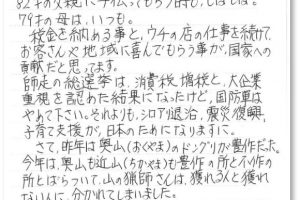 82才の父親に手伝ってもらう時も、しばしば。
79才の母は、いつも。
税金を納める事と、ウチの店の仕事を続けて、
お客さんや地域に喜んでもらう事が、国家への
貢献だと思ってます。
師走の総選挙は、消費税増税と、大企業
重視を認めた結果になったけど、国防軍は
やめて下さい。それよりも、シロアリ退治、震災復興、
子育て支援が、日本のためになりますに。
さて、昨年は奥山(おくやま)のドングリが豊作だった。
今年は、奥山も近山(ちかやま)も豊作の所と不作の
所とばらついて、山の猟師さんは、獲れる人と獲れ
ない人に、分かれてしまいました。